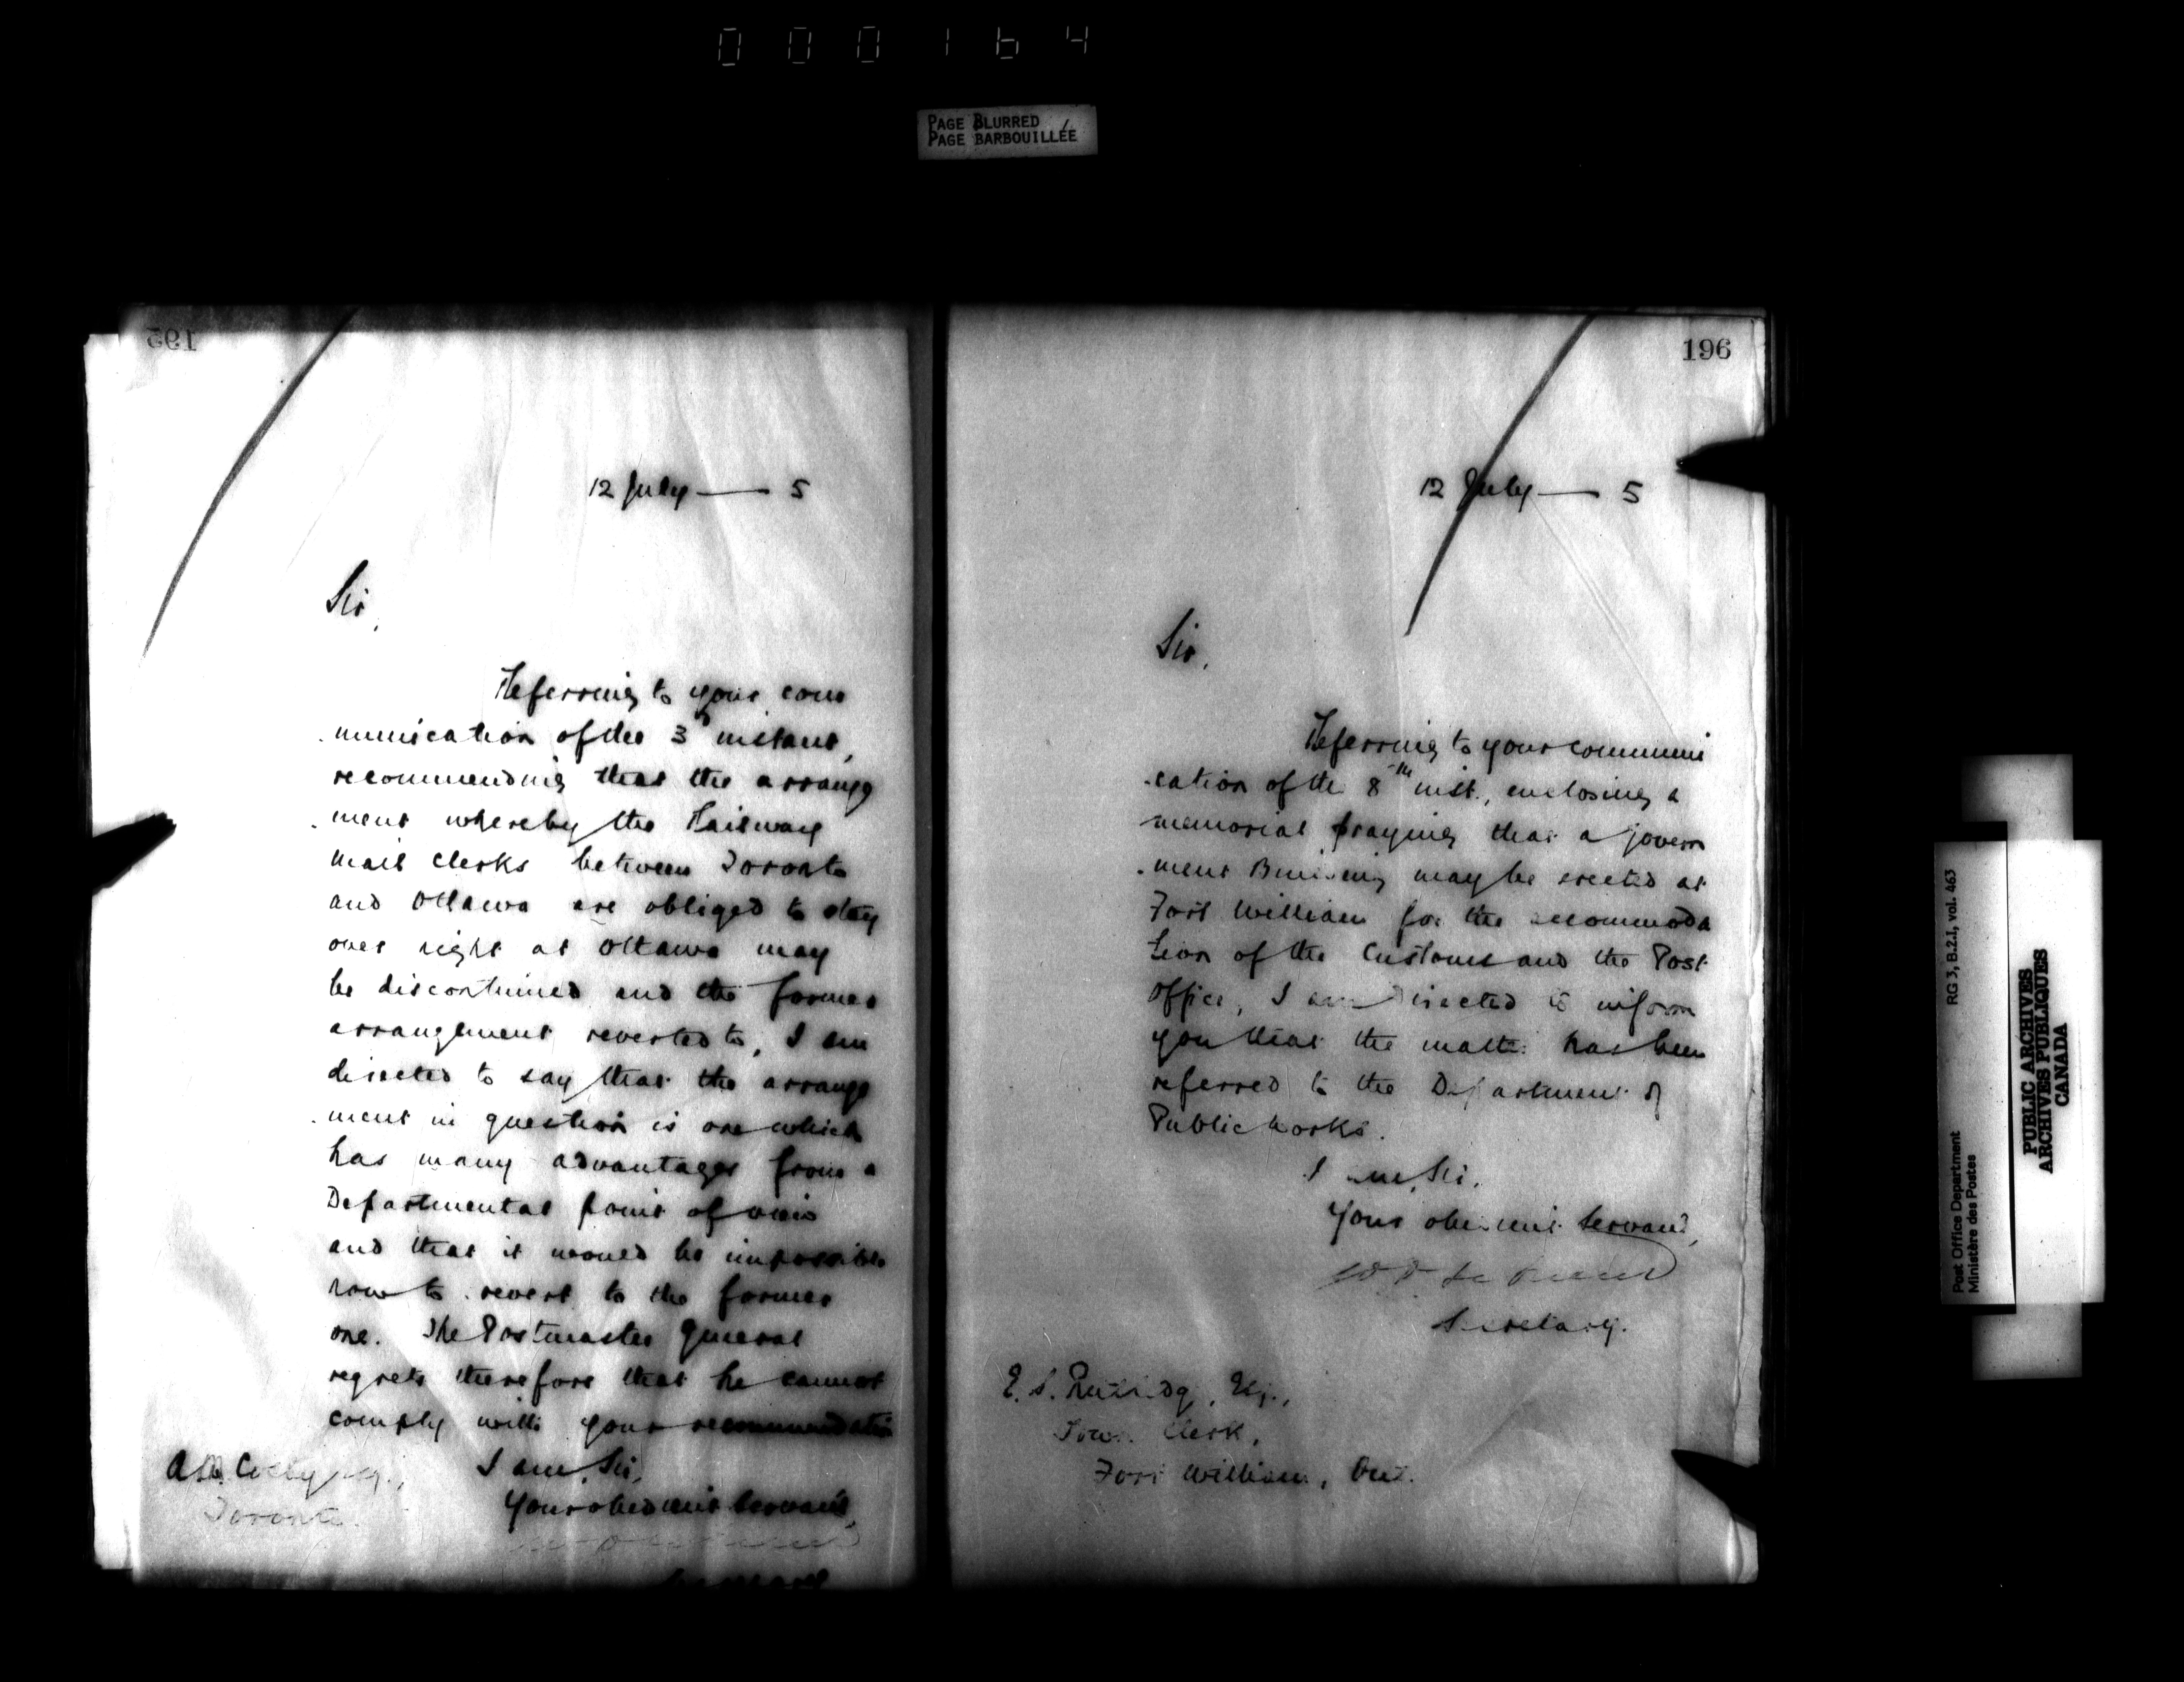 000164
PAGE BLURRED
PAGE BARBOUILLÉE
195
12 July — 5
Sir,
Referring to your com
munication of the 3d instant,
recommending that the arrange
ment whereby the Railway
mail clerks between Toronto
and Ottawa are obliged to stay
over night at Ottawa may
be discontinued and the former
arrangement reverted to, I am
directed to say that the arrange
ment in question is one which
has many advantages from a
Departmental point of view
and that it would be impossible
now to revert to the former
one. The Postmaster General
regrets therefore that he cannot
comply with your recommendation
I am, Sir,
Your obedient servant,
Secretary
Esq.,
Toronto.
196
12 July — 5
Sir,
Referring to your communi
cation of the 8th inst., enclosing a
memorial praying that a govern
ment Building may be erected at
Fort William for the accommoda
tion of the Customs and the Post
Office, I am directed to inform
you that the matter has been
referred to the Department of
Public Works.
I am, Sir,
Your obedient servant,
Secretary.
E. S. Rutledge, Esq.,
Town Clerk,
Fort William, Ont.
RG 3, B.2.1, vol. 463
Post Office Department
Ministère des Postes
PUBLIC ARCHIVES
ARCHIVES PUBLIQUES
CANADA